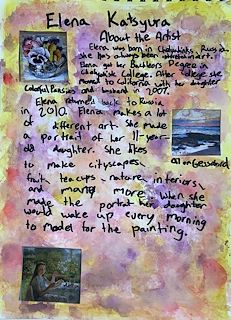 Elena Katsyura
About the Artist
Elena was born in Chelyabinsk, Russia.
She has always been interested in art.
Elena got her Bachleors Degree in
Chelyabinsk College. After college she
moved to California with her daughter
Colorful Pansies and husband in 2007.
Elena returned back to Russia
in 2010. Elena makes a lot
of different art. She made
a portrait of her 11-year-
old daughter. She likes
to make cityscapes,
Oil on Gessobord
fruit, teacups, nature, interiors,
and many more. When she
made the portrait her daughter
would wake up every morning
to model for the painting.